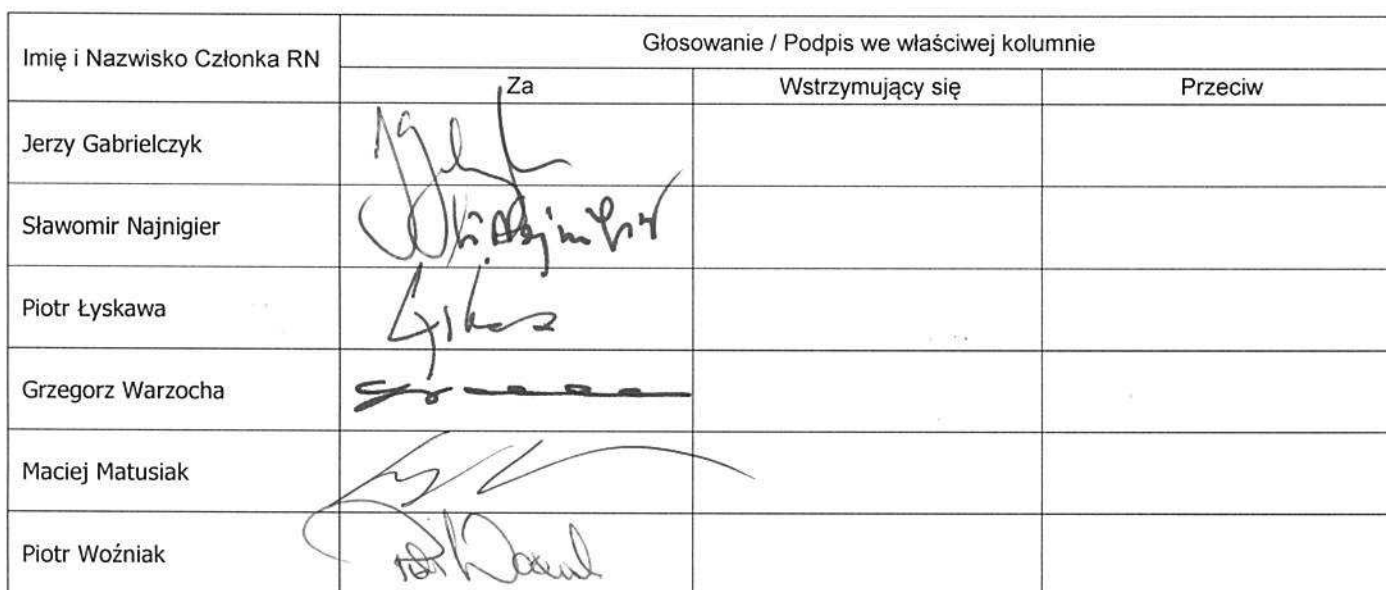 Imię i Nazwisko Członka RN
Głosowanie / Podpis we właściwej kolumnie
Za
Wstrzymujący się
Przeciw
Jerzy Gabrielczyk
Sławomir Najnigier
Piotr Łyskawa
Grzegorz Warzocha
Maciej Matusiak
Piotr Woźniak